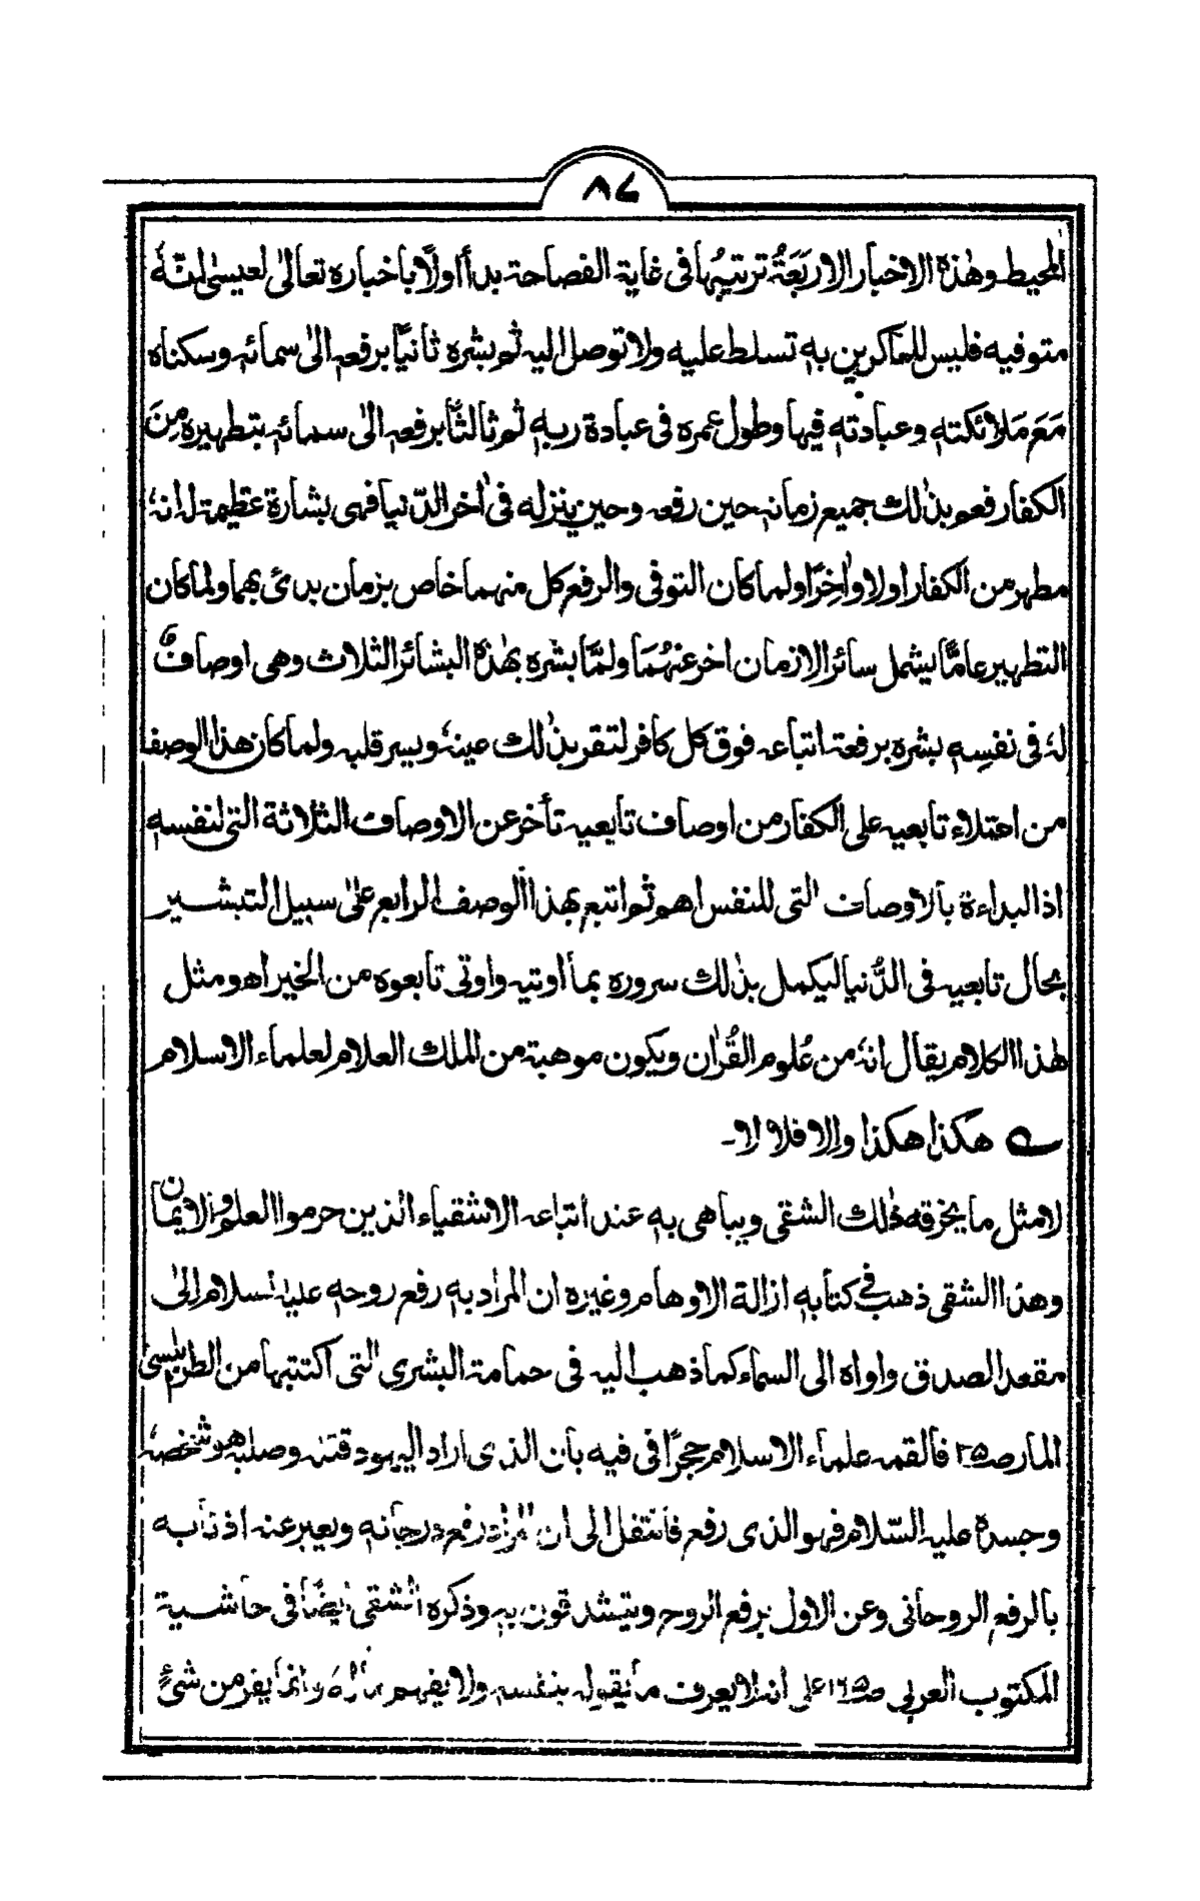 ٨٤
المحیط وهٰذه الاخبار الاربَعَةُ ترتیبُها فی غایة الفصاحة بدأ اولًا باخباره تعالیٰ لعیسٰی انّهٗ
متوفیه فلیس للماکرین بهٖ تسلط علیه ولا توصل الیه ثم بشره ثانیًا برفعهٖ الیٰ سمائهٖ وسکناه
مَعَ مَلائکتهٖ وعبادتهٖ فیها وطول عمره فی عبادة ربهٖ ثم ثالثًا برفعهٖ الیٰ سمائهٖ بتطهیره مِنَ
الکفار فعم بذٰلك جمیع زمانهٖ حین رفعه وحین ینزله فی اٰخر الدّنیا فهی بشارة عظیمة له انهٗ
مطهر من الکفار اولا واٰخِرًا ولما کان التوفی والرفع کل منهما خاص بزمان بدئ بهما ولما کان
التطهیر عامًّا یشمل سائر الازمان اخر عنهُمَا ولمّا بشره بهٰذه البشائر الثلاث وهی اوصافٌ
لهٗ فی نفسِهٖ بشره برفعة اتباعه فوق کل کافر لتقر بذٰلك عینهٗ ویسر قلبه ولما کان هذا الوصف
من اعتلاء تابعیه علی الکفار من اوصاف تابعیه تأخر عن الاوصاف الثلاثة التی لنفسهٖ
اذ البداءة بالاوصاف التی للنفس اهم ثم اتبع بهذا الوصف الرابع علیٰ سبیل التبشیر
بحال تابعیه فی الدُّنیا لیکمل بذٰلك سروره بما اوتیه واوتی تابعوه من الخیر اھ ومثل
هٰذا الکلام یقال انهٗ من عُلوم القُرٰان ویکون موهبة من الملك العلام لعلماء الاسلام
ے هکذا هکذا والا فلا لا۔
لا مثل ما یخرقه ذٰلك الشقی ویباهی بهٖ عند اتباعه الاشقیاء الذین حرموا العلم والایمان
وهذا الشقی ذهب فی کتابهٖ ازالة الاوهام وغیره ان المراد به رفع روحهٖ علیه السلام الیٰ
مقعد الصدق واواه الی السماء کما ذهب الیه فی حمامة البشری التی اکتتبها من الطرابلسی
المار صـ٢٥ فالقمه علماء الاسلام حجرًا فی فیه بان الذی اراد الیهود قتله وصلبه هو شخصهٗ
وجسده علیه السّلام فهو الذی رفع فانتقل الی ان المراد رفع درجاته ویعبر عنه اذنابه
بالرفع الروحانی وعن الاول برفع الروح ویتشدقون بهٖ وذکره الشقی ایضًا فی حاشیة
المکتوب العربی صـ١٦٥ علی انه لا یعرف ما یقوله بنفسهٖ ولا یفهم مآله وانما یفر من شئٍ